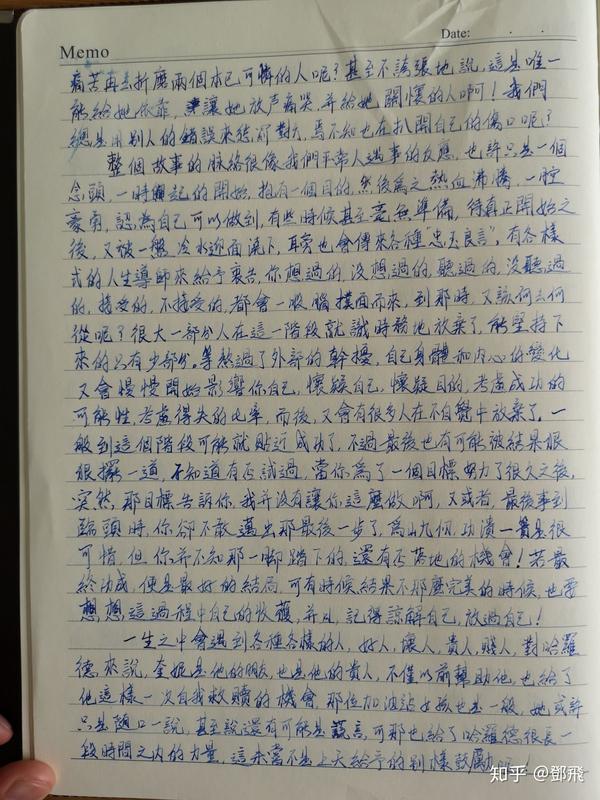 Memo
Date:
痛苦再去折磨兩個本已可憐的人呢？甚至不誇張地說，這是唯一
能給她依靠，讓她放声痛哭，并給她關懷的人啊！我們
總是用別人的錯誤來惩对，焉不知也在扒開自己的傷口呢？
整個故事的脉络很像我們平常人遇事的反應，也許只是一個
念頭，一時興起的開始，抱有一個目的，然後為之熱血沸騰，一腔
豪勇，認為自己可以做到，有些時候甚至毫無準備，待真正開始之
後，又被一盤冷水迎面流下，耳旁也會傳來各種“忠玉良言”，有各樣
式的人生導師來給予衷告，你想過的，沒想過的，聽過的，沒聽過
的，接受的，不接受的，都會一股腦撲面而來，到那時，又該何去何
從呢？很大一部分人在這一階段就識時務地放棄了，能堅持下
來的只有少部分。等熬過了外部的幹擾，自己身體和内心的變化
又會慢慢開始影響你自己，懷疑自己，懷疑目的，考慮成功的
可能性，考慮得失的比率，而後，又會有很多人在不自覺中放棄了。一
般到這個階段可能就貼近成功了，不過最後也有可能被結果狠
狠擺一道，不知道有否試過，當你爲了一個目標努力了很久之後，
突然，那目標告訴你，我并没有讓你這麼做啊，又或者，最後事到
臨頭時，你卻不敢邁出那最後一步了，爲山九仞，功潰一簣是很
可惜，但你并不知那一腳踏下的，還有否落地的機會！若最
終功成，便是最好的結局，可有時候結果不那麼完美的時候，也要
想想，這過程中自己的收穫，并且，記得諒解自己，放過自己！
一生之中會遇到各種各樣的人，好人，壞人，貴人，賤人，對哈羅
德來說，奎妮是他的朋友，也是他的貴人，不僅以前幫助他，也給了
他這樣一次自我救贖的機會，那位加油站女孩也是一般，她或許
只是随口一說，甚至說還有可能是謊言，可那也給了哈羅德很長一
段時間之内的力量，這未嘗不是上天給予的别樣鼓勵呢！
知乎 @鄧飛